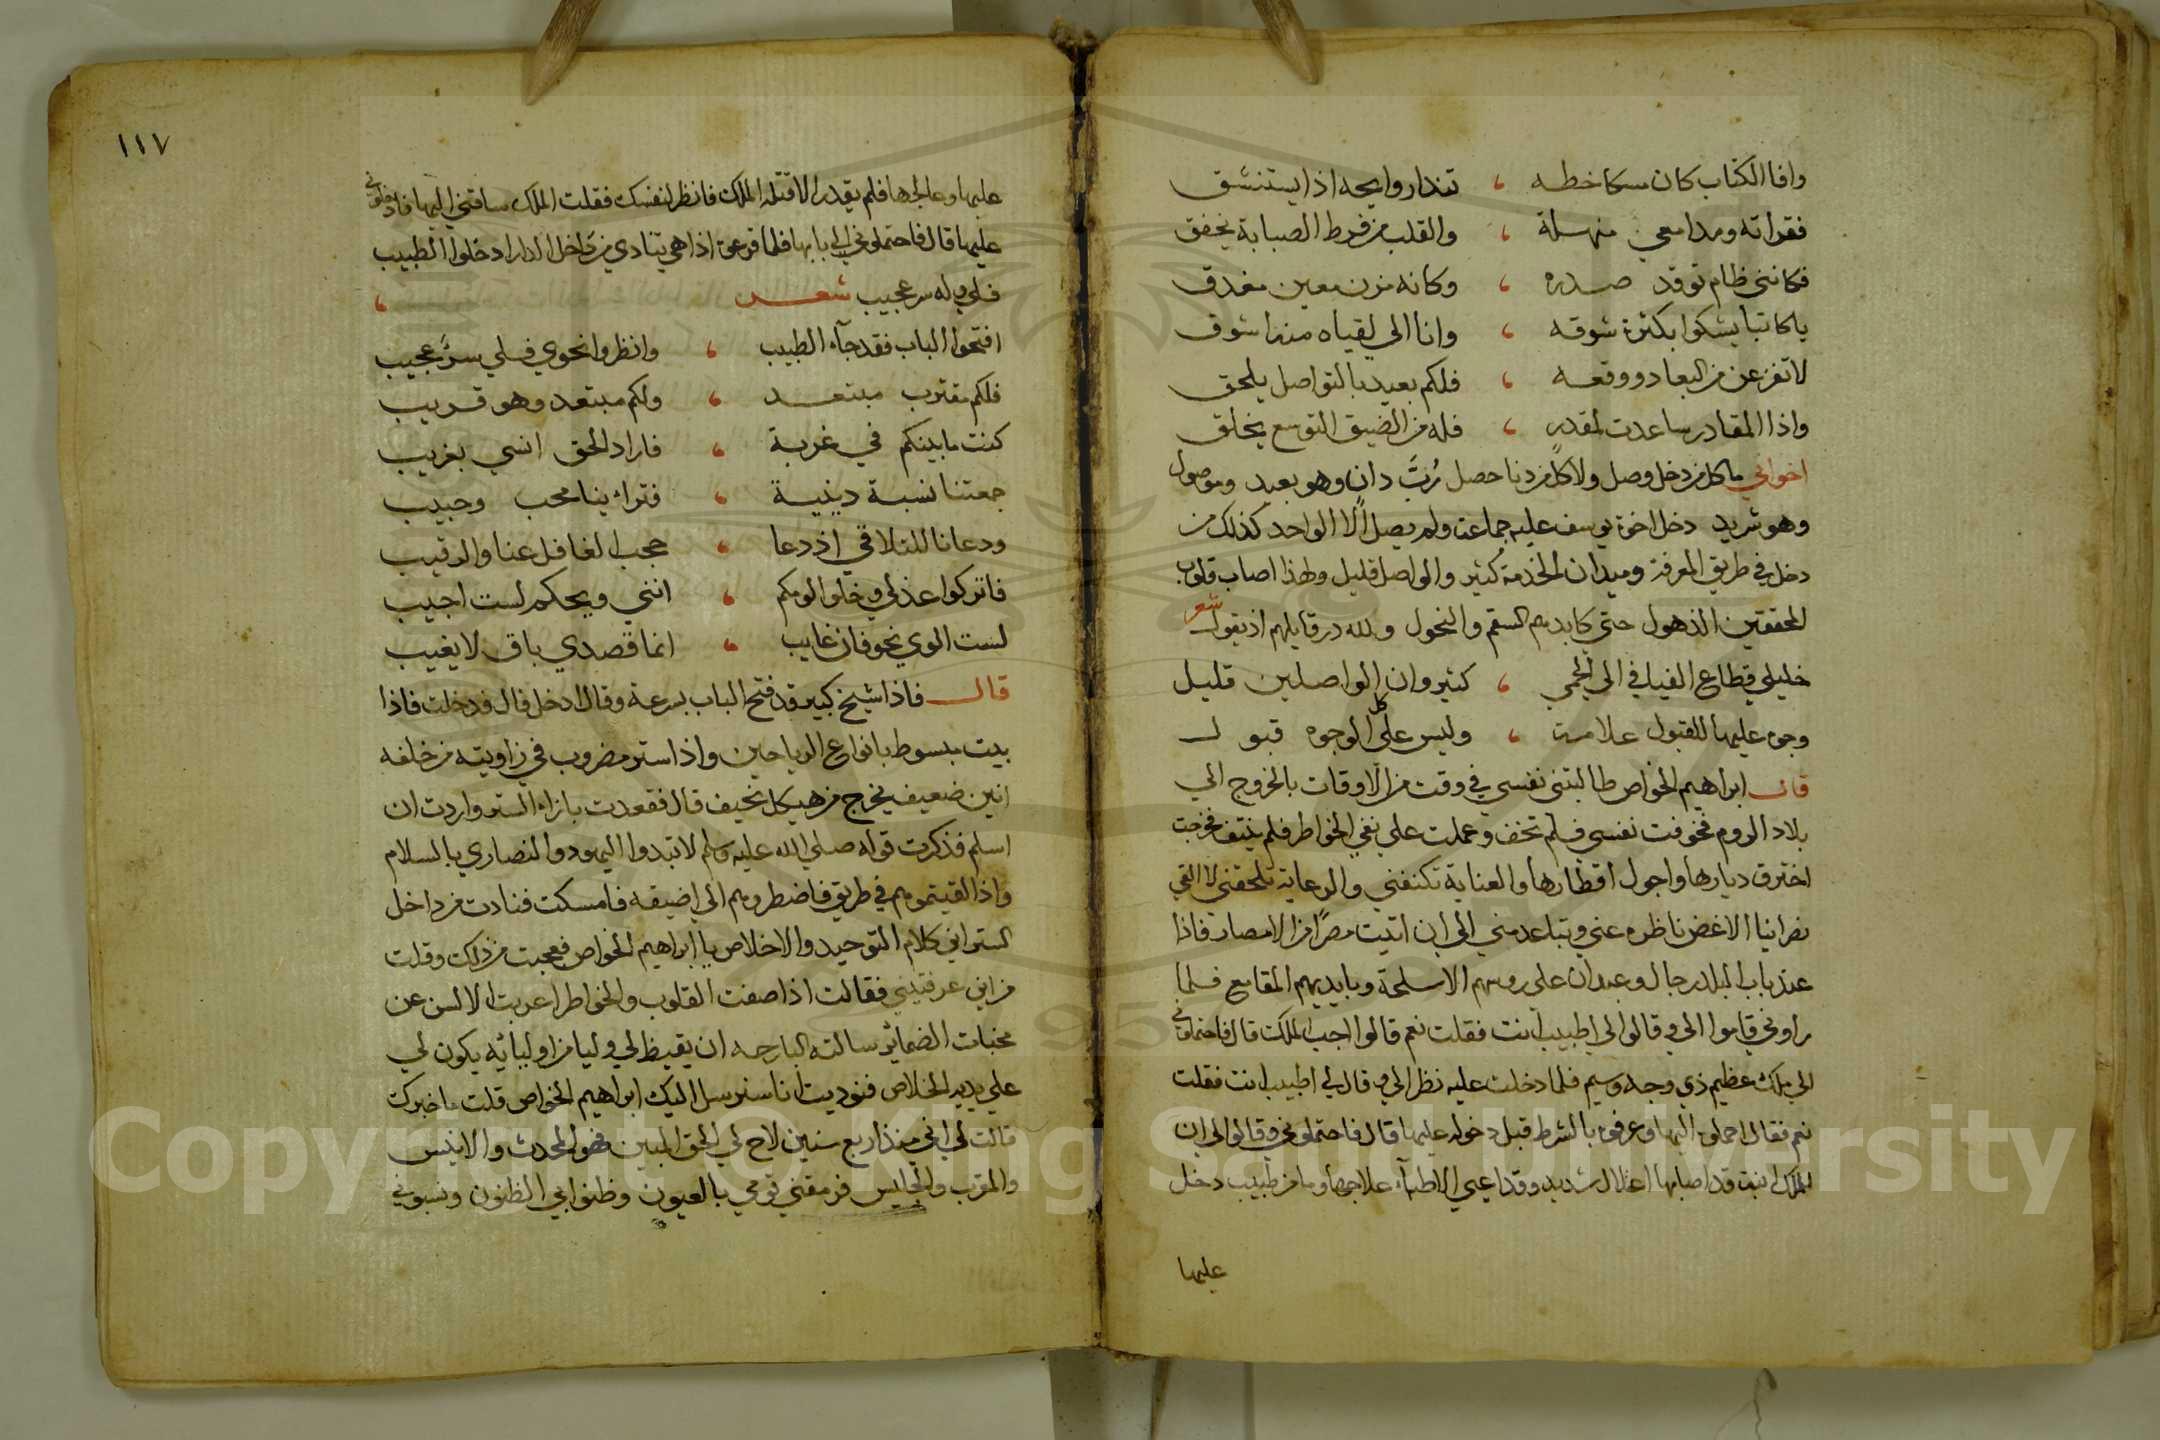 وافا الكتاب كان مسكا خطه ، تندا روايحه اذا يستنشق
فقراته ومدامعي منهلة ، والقلب من فرط الصبابة يخفق
فكانني ظام توقد صدره ، وكانه مزن معين مغدق
يا كاتبا يشكوا بكثرة شوقه ، وانا الي لقياه منه اشوق
لا تفزعن من البعاد ووقعه ، فلكم بعيد بالتواصل يلحق
واذا المقادر ساعدت لمقدر ، فله من الضيق التوسع يخلق
اخواني ما كل من دخل وصل ولا كل من دنا حصل رُبَّ دان وهو بعيد وموصول
وهو شريد دخل اخوة يوسف عليه جماعة ولم يصل الا الواحد كذلك من
دخل في طريق المعرفة وميدان الخدمة كثير والواصل قليل ولهذا اصاب قلوب
المحققين الذهول حتي كابدهم السقم والنحول ولله در قايلهم اذ يقول شعر
خليلي قطاع الفيافي الي الحمي ، كثير وان الواصلين قليل
وجوه عليها للقبول علامة ، وليس علي كل الوجوه قبول
قال ابراهيم الخواص طالبتني نفسي في وقت من الاوقات بالخروج الي
بلاد الروم فخوفت نفسي فلم تخف وعملت علي نفي الخواطر فلم ينتف فخرجت
اخترق ديارها واجول اقطارها والعناية تكنفني والرعاية تلحقني لا القي
نصرانيا الا غض ناظره عني وتباعد مني الي ان اتيت مصرًا من الامصار فاذا
عند باب البلد رجال وعبدان علي روسهم الاسلحة وبايديهم المقامع فلما
راوني قاموا الي وقالوا لي اطبيب انت فقلت نعم قالوا اجب الملك قال فاحتملوني
الي ملك عظيم ذي وجه وسيم فلما دخلت عليه نظر الي وقال لي اطبيب انت فقلت
نعم فقال احملوه اليها وعرفوه بالشرط قبل دخوله عليها قال فاحتملوني وقالوا لي ان
الملك ابنة قد اصابها اعلال شديد وقد اعيي الاطبآء علاجها وما من طبيب دخل
عليها
١١٧
عليها وعالجها فلم يقدر الا قتله الملك فانظر لنفسك فقلت الملك ساقني اليها فادخلوني
عليها قال فاحتملوني الي بابها فلما قرعوه اذا هي تنادي من داخل الدار ادخلوا الطبيب
فلي وله سر عجيب شعر ،
افتحوا الباب فقد جآء الطبيب ، وانظروا نحوي فلي سرٌّ عجيب
فلكم مقترب مبتعد ، ولكم مبتعد وهو قريب
كنت ما بينكم في غربة ، فاراد الحق انسي بغريب
جمعتنا نسبة دينية ، فتراينا محب وحبيب
ودعانا للتلاقي اذ دعا ، حجب الغافل عنا والرقيب
فاتركوا عذلي وخلوا لومكم ، انني ويحكم لست اجيب
لست الوي نحو فان غايب ، انما قصدي باق لا يغيب
قال فاذا شيخ كبير قد فتح الباب بسرعة وقال ادخل قال فدخلت فاذا
بيت مبسوط بانواع الرياحين واذا ستر مضروب في زاويته من خلفه
انين ضعيف يخرج من هيكل نحيف قال فقعدت بازاء الستر واردت ان
اسلم فذكرت قوله صلي الله عليه وسلم لا تبدوا اليهود والنصاري بالسلام
واذا لقيتموهم في طريق فاضطروهم الي اضيقه فامسكت فنادت من داخل
الستر اين كلام التوحيد والاخلاص يا ابراهيم الخواص فعجبت من ذلك وقلت
من اين عرفتيني فقالت اذا صفت القلوب والخواطر اعربت الالسن عن
مخبات الضمائر سالته البارحه ان يقيظ لي وليا من اوليائه يكون لي
علي يديه الخلاص فنوديت انا سنرسل اليك ابراهيم الخواص قلت ما خبرك
قالت لي اني منذ اربع سنين لاح لي الحق المبين فهو المحدث والانيس
والمقرب والجليس فرمقني قومي بالعيون وظنوا بي الظنون ونسبوني
Copyright © King Saud University